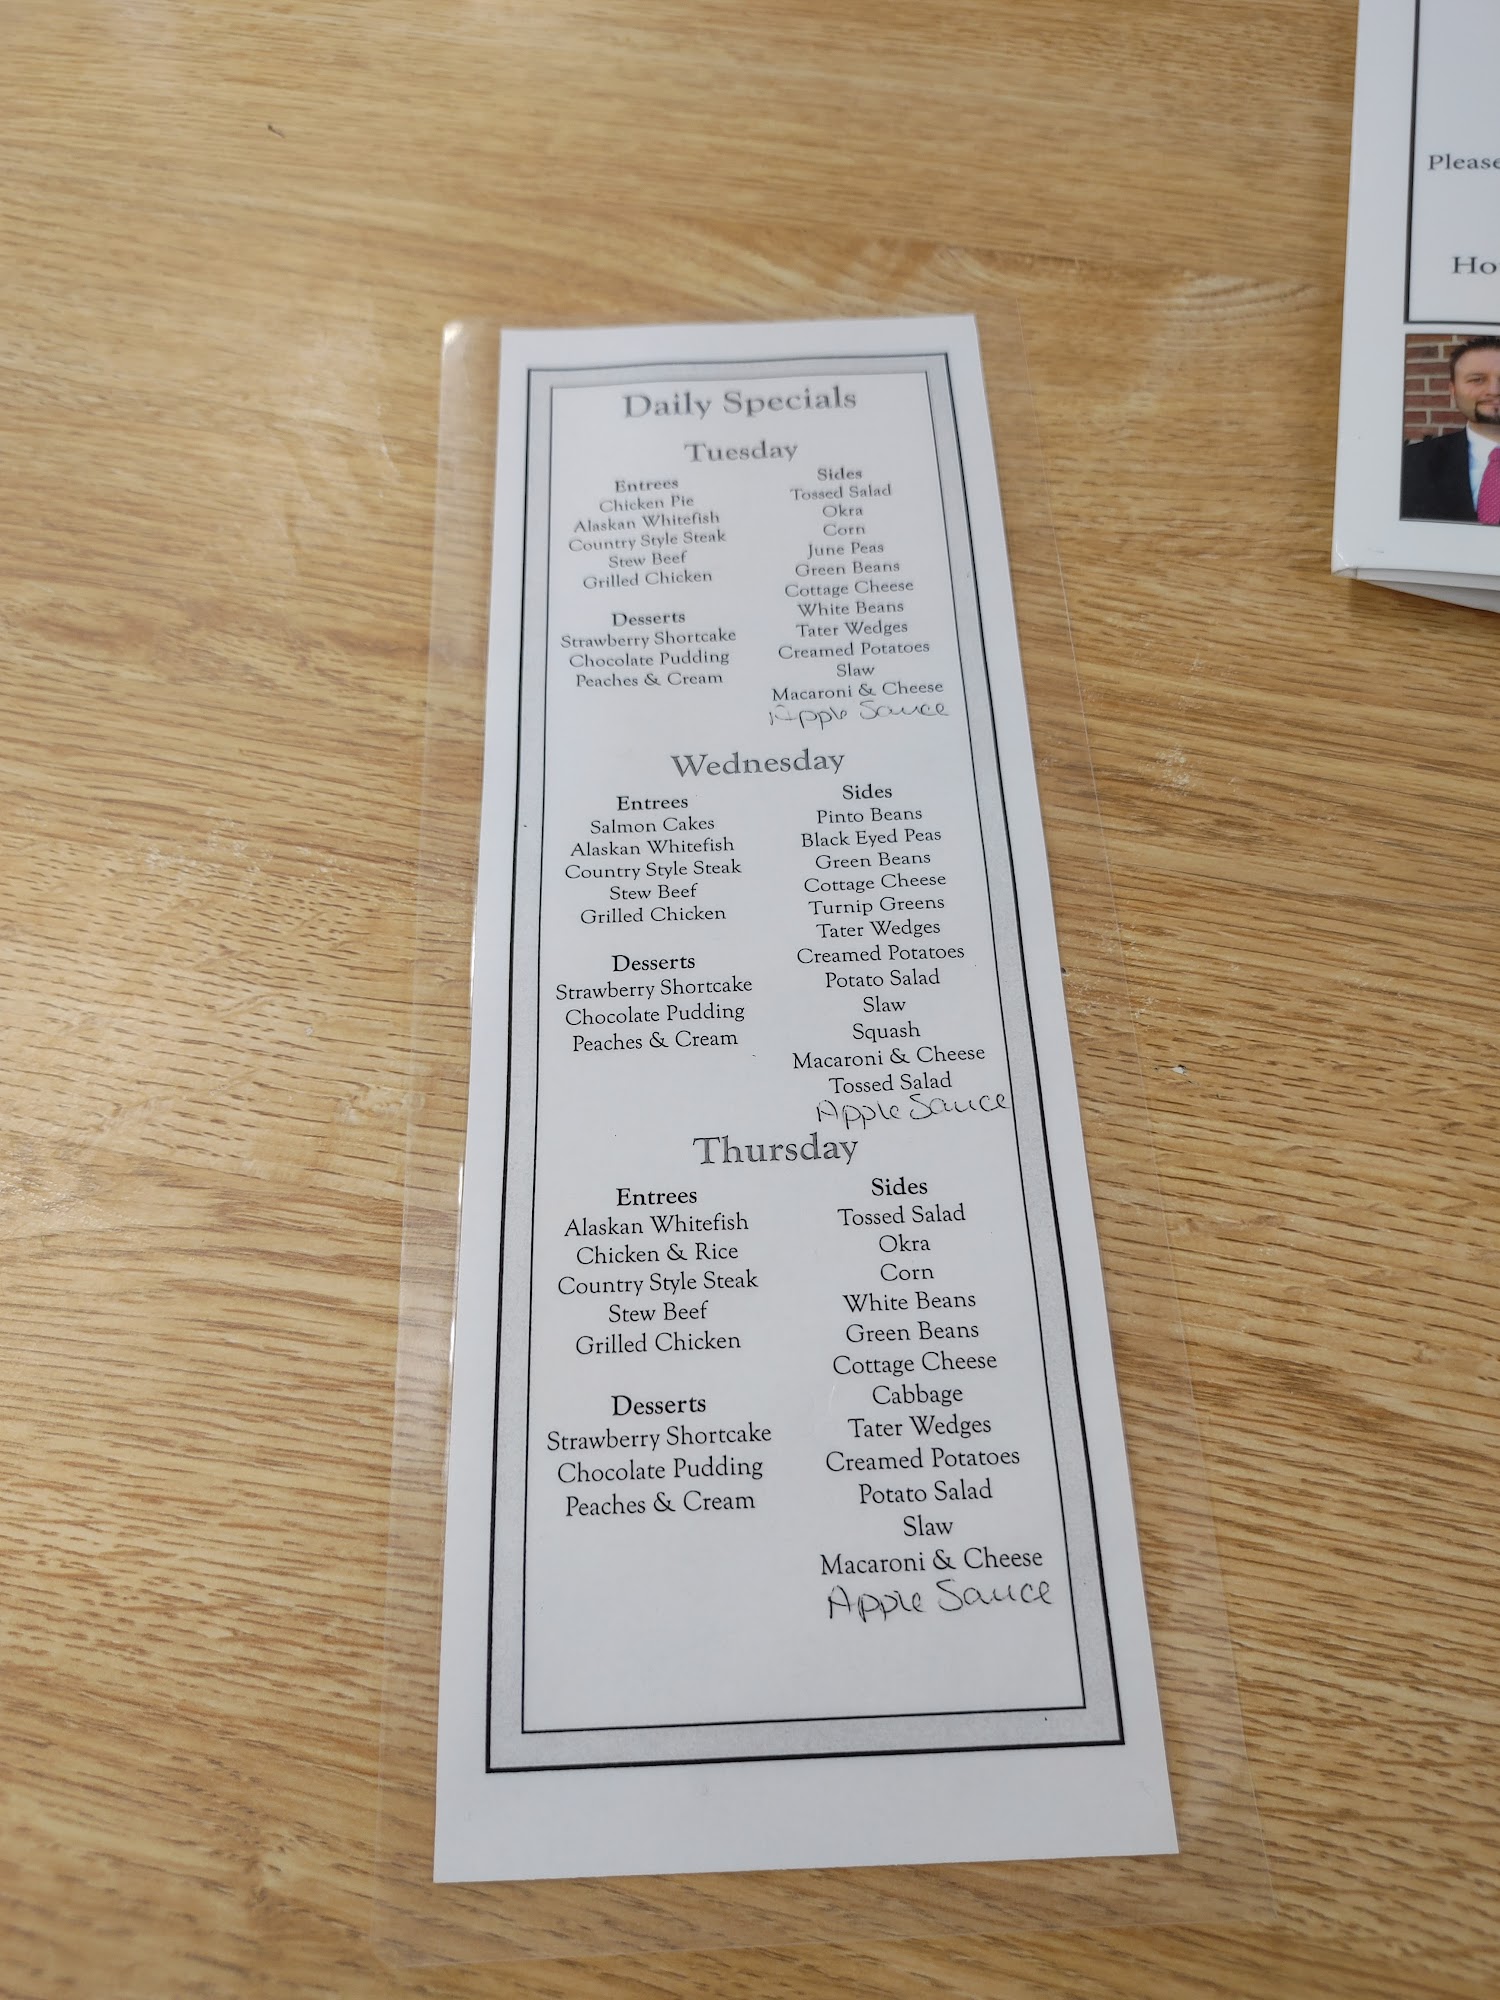 Daily Specials
Tuesday
Entrees
Chicken Pie
Alaskan Whitefish
Country Style Steak
Stew Beef
Grilled Chicken
Desserts
Strawberry Shortcake
Chocolate Pudding
Peaches & Cream
Sides
Tossed Salad
Okra
Corn
June Peas
Green Beans
Cottage Cheese
White Beans
Tater Wedges
Creamed Potatoes
Slaw
Macaroni & Cheese
Apple Sauce
Wednesday
Entrees
Salmon Cakes
Alaskan Whitefish
Country Style Steak
Stew Beef
Grilled Chicken
Desserts
Strawberry Shortcake
Chocolate Pudding
Peaches & Cream
Sides
Pinto Beans
Black Eyed Peas
Green Beans
Cottage Cheese
Turnip Greens
Tater Wedges
Creamed Potatoes
Potato Salad
Slaw
Squash
Macaroni & Cheese
Tossed Salad
Apple Sauce
Thursday
Entrees
Alaskan Whitefish
Chicken & Rice
Country Style Steak
Stew Beef
Grilled Chicken
Desserts
Strawberry Shortcake
Chocolate Pudding
Peaches & Cream
Sides
Tossed Salad
Okra
Corn
White Beans
Green Beans
Cottage Cheese
Cabbage
Tater Wedges
Creamed Potatoes
Potato Salad
Slaw
Macaroni & Cheese
Apple Sauce
Please